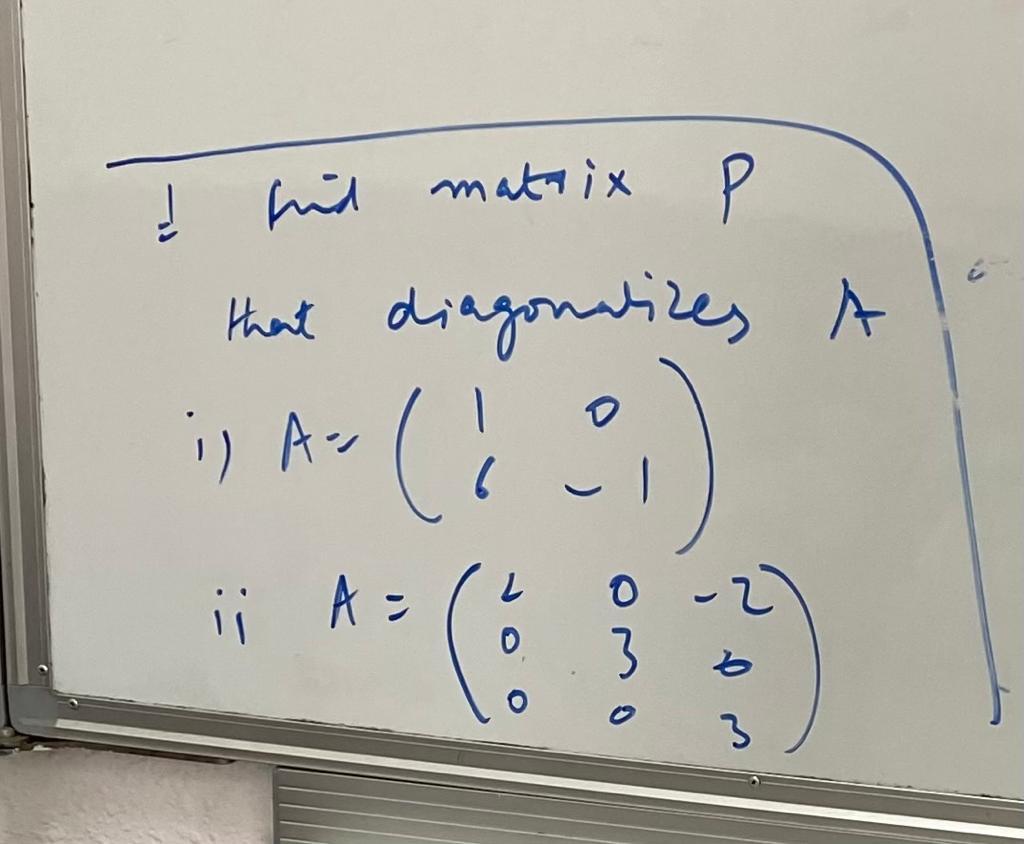 1 find matrix P
that diagonalizes A
i) A = ( 1 0
6 -1 )
ii A = ( 2 0 -2
0 3 0
0 0 3 )